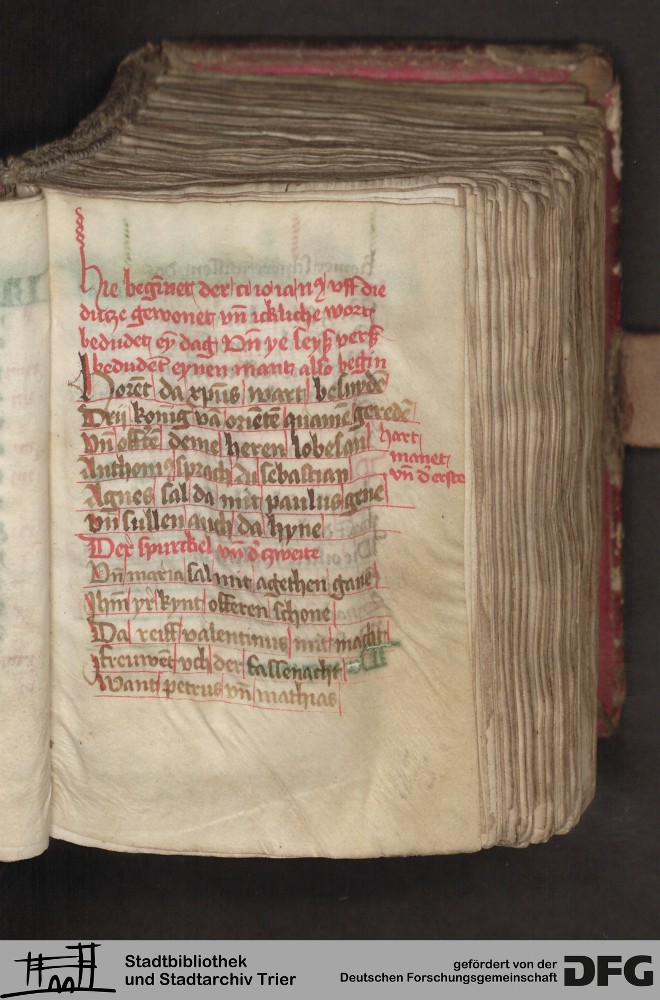 hie begīnet der cisioianꝰ vff die
dutze gewonet vn̄ ickliche wort
bedudet eȳ dag Vn̄ ye seyß verß
bedudent eynen mant also begin
Horent da xp̄us wart besnydē
Drij konig vā orientē quamē geredē
Vn̄ offrē deme heren lobesan
hart
manet
vn̄ d' erste
Anthoniꝰ sprach zu sebastian
Agnes sal da mit paulus gene
vn̄ sullen auch da hyne
Der spurckel vn̄ d' zweite
Vn̄ maria sal mit agethen gane
Ihm yr kynt offeren schone
Da reiff valentinus mit macht
freuwent vch der fassenacht
Want petrus vn̄ mathias
Stadtbibliothek
und Stadtarchiv Trier
gefördert von der
Deutschen Forschungsgemeinschaft
DFG